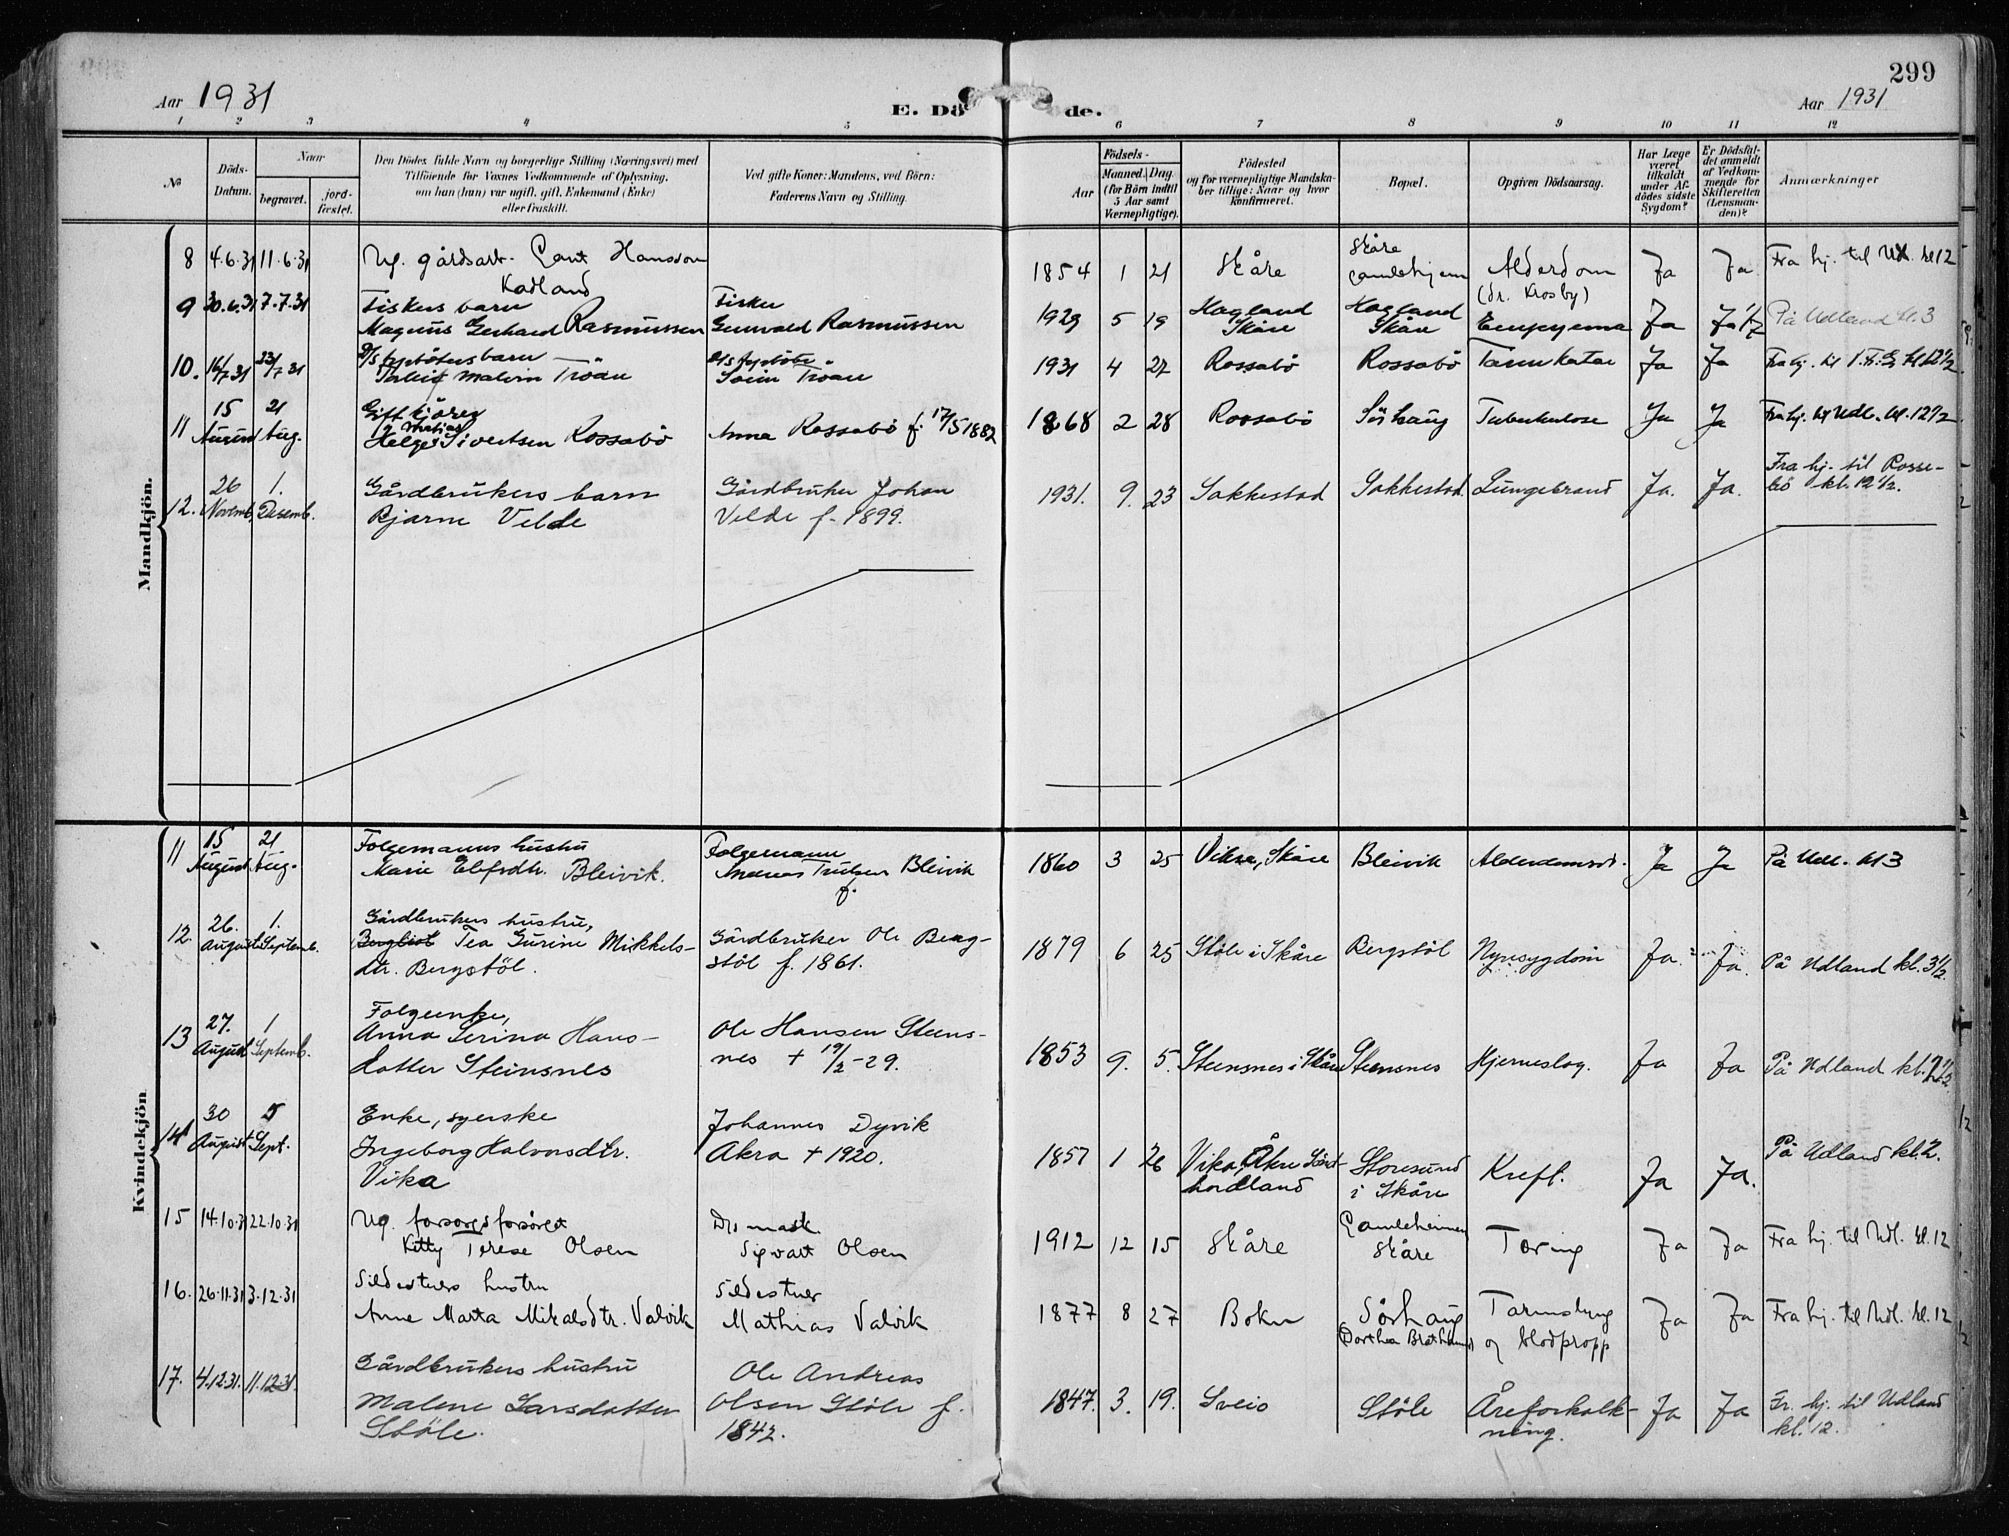 299
Aar 1931
E. Dö de.
Aar 1931
1 2 3 4 5 6 7 8 9 10 11 12
No
Döds-
Datum.
Naar
begravet.
jord-
fæstet.
Den Dödes fulde Navn og borgerlige Stilling (Næringsvei) med
Tilföiende for Voxnes Vedkommende af Oplysning,
om han (hun) var ugift, gift, Enkemand (Enke)
eller fraskilt.
Ved gifte Koner: Mandens, ved Börn:
Faderens Navn og Stilling.
Födsels-
Aar
Maaned. Dag
(for Börn indtil
5 Aar samt
Værnepligtige).
Födested
og for værnepligtige Mandska-
ber tillige: Naar og hvor
konfirmeret.
Bopæl.
Opgiven Dödsaarsag.
Har Læge
været
tilkaldt
under Af-
dödes sidste
Sygdom?
Er Dödsfal-
det anmeldt
af Vedkom-
mende for
Skifteretten
(Lensman-
den)?
Anmærkninger
Mandkjön.
8 4.6.31 11.6.31 Ug. gårdsarb. Hansson
Kadland
1854 1 21 Skåre
Skåre
Gamlehjem
Alderdom
(dr. Krosby)
Ja Ja Fra hj. til kl 12
9 30.6.31 7.7.31 Fiskers barn
Magnus Gerhard Rasmussen
Fisker
Rasmussen
1929 5 19
Hagland
Skåre
Hagland
Skåre
Empyema Ja Ja På Udland kl. 3
10. 16/7 31 23/7 31 barn
Malvin Tröan
Tröan
1931 4 27 Rossabö Rossabö Tarmkatar Ja Ja Fra hj. til kl 12 1/2
11 15
August
21
Aug.
Gift kjörer
Helge Matias Sivertsen Rossabö
Anna Rossabö f. 17/5 1882
1868 2 28 Rossabö Sörhaug Tuberkulose Ja Ja Fra hj. til Udl. kl. 12 1/2
12. 26
Novemb.
1.
Desemb.
Gårdbrukers barn
Bjarne Velde
Gårdbruker Johan
Velde f. 1899.
1931. 9. 23 Sakkestad Sakkestad. Lungebrand Ja. Ja.
Fra hj. til Rosse-
bö kl. 12 1/2.
Kvindekjön
11 15
August
21
Aug.
Folgemanns hustru
Marie Elefsdtr. Bleivik.
Folgemann
Andreas Trulsen Bleivik
f.
1860 3 25 Vikse, Skåre Bleivik Ja Ja På Udl. kl 3
12. 26.
August
1.
Septemb.
Gårdbrukers hustru,
Tea Gurine Mikkels-
dtr. Bergstöl.
Gårdbruker Ole Berg-
stöl f. 1861.
1879 6 25 Stöle i Skåre Bergstöl Nyresygdom Ja. Ja. På Udland kl. 3 1/2.
13 27.
August
1
Septemb.
Folgeenke,
Anna Serina Hans-
dotter Steinsnes
Ole Hansen Steens-
nes + 19/2-29.
1853 9. 5. Steensnes i Skåre Steensnes Hjerneslag. Ja Ja På Udland kl. 2 1/2
14 30
August
5
Sept.
Enke, syerske
Ingeborg Halvorsdtr.
Vika
Johannes Dyvik
Akra + 1920.
1857 1 26 Vika, Åkre Sönd-
hordland
Storesund
i Skåre
Kreft. Ja Ja. På Udland kl. 2.
15 14.10.31 22.10.31 Ug. forsorgsforsörget
Kitty Terese Olsen
Sigvart Olsen
1912 12 15 Skåre
Gamleheimen
Skåre
Tæring Ja Ja Fra hj. til Udl. kl. 12
16. 26.11.31 3.12.31 Sildestuers hustru
Anne Marta Mikalsdtr. Valvik
Sildestuer
Mathias Valvik
1877 8 27 Bokn Sörhaug
Tarmslyng
og blodpropp
Ja Ja Fra hj. til Udl. kl. 12
17. 4.12.31. 11.12.31. Gårdbrukers hustru
Malene Larsdotter
Stöle.
Ole Andreas
Olsen Stöle f.
1842.
1847. 3. 19. Sveio Stöle Åreforkalk-
ning.
Ja Ja Fr. hj. til Udland
kl. 12.